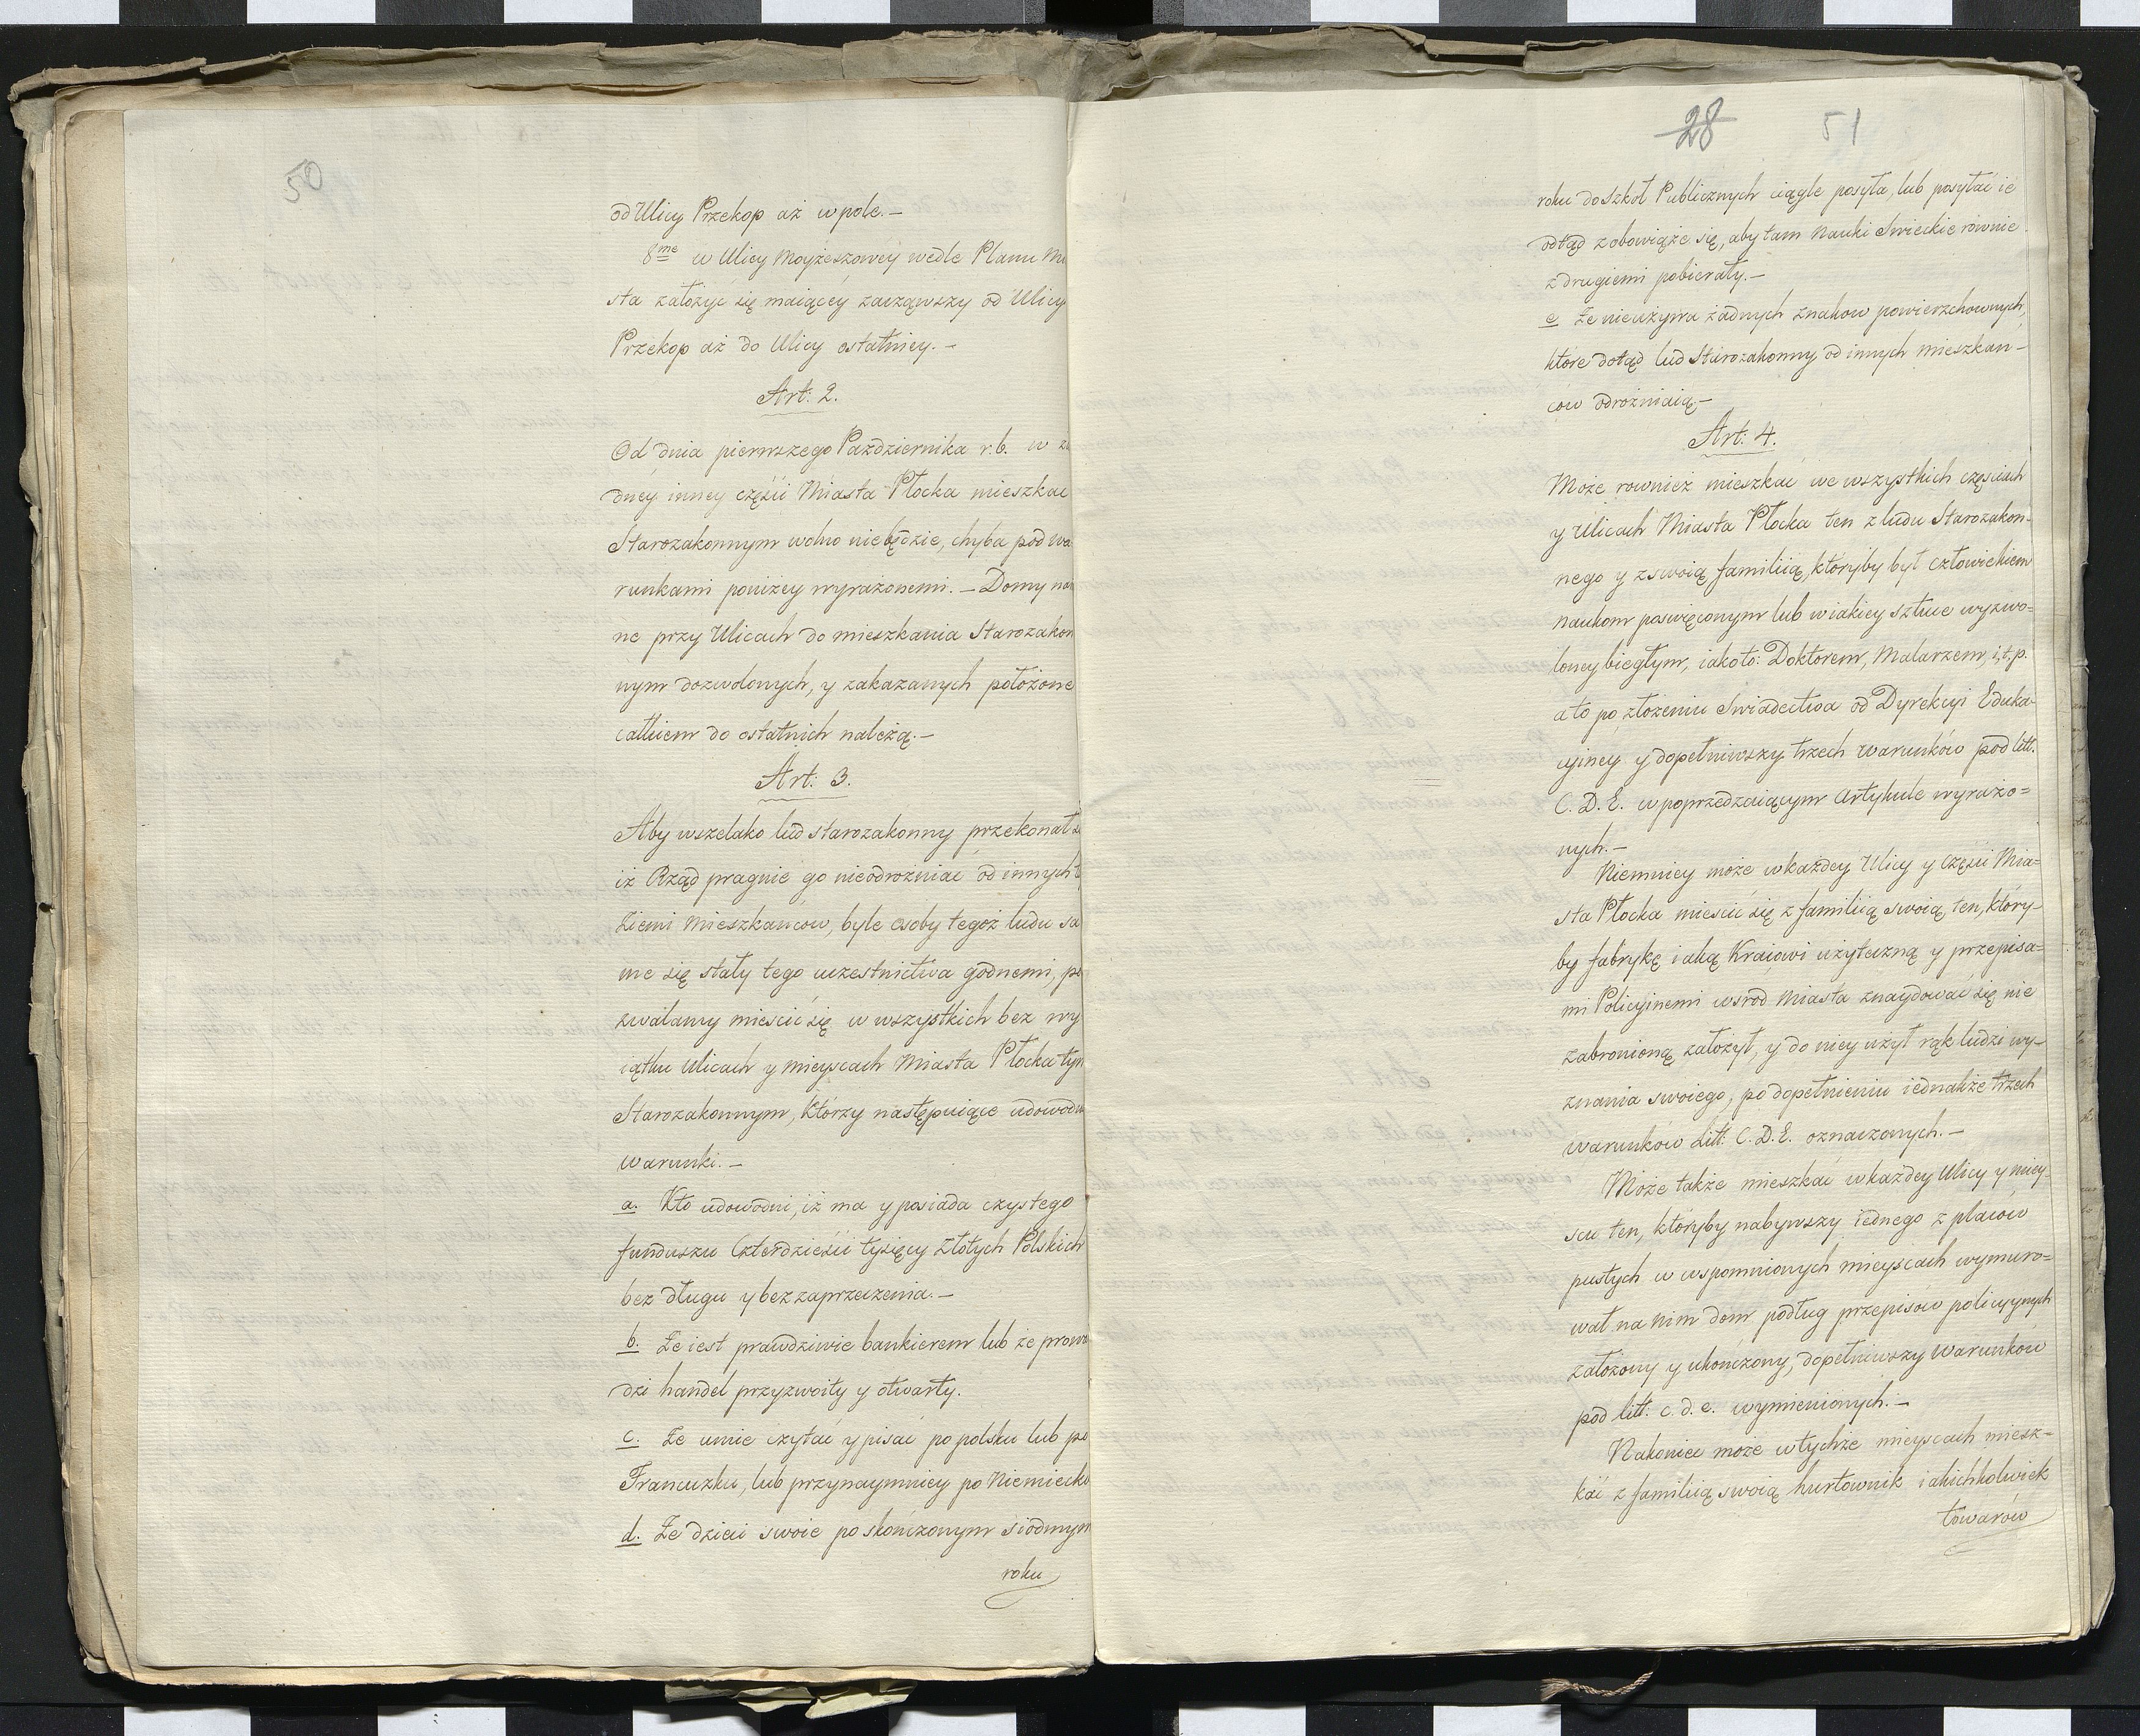 50
od Ulicy Przekop aż w pole. –
8me w Ulicy Moyżeszowéy wedle Planu Mi
sta założyć się maiącéy zacząwszy od Ulicy
Przekop aż do Ulicy ostatniey. –
Art: 2.
Od dnia pierwszego Pazdziernika r. b. w ża
dney inney części Miasta Płocka mieszkac
Starozakonnym wolno niebędzie, chyba pod wa
runkami poniżey wyrażonemi. – Domy naro
ne przy Ulicach do mieszkania Starozakon
nym dozwolonych, y zakazanych położone
całkiem do ostatnich należą. –
Art: 3.
Aby wszelako lud starozakonny przekonał
iż Rząd pragnie go nieodrożniać od innych
Ziemi Mieszkańcow, byle osoby tegoż ludu sa
me się stały tego uczestnictwa godnemi, po
zwalamy mieścić się w wszystkich bez wy
iątku Ulicach y mieyscach Miasta Płocka tym
Starozakonnym, którzy następuiące udowodn
warunki. –
a. Kto udowodni, iż ma y posiada czystego
funduszu Czterdzieści tysięcy Złotych Polskich
bez długu y bez zaprzeczenia. –
b. Że iest prawdziwie bankierem lub że prowa
dzi handel przyzwoity y otwarty.
c. Że umie czytać y pisać po polsku lub po
Francuzku, lub przynaymniey po Niemiecku
d. Że dzieci swoie po skończonym siodmym
roku
28 51
roku do szkoł Publicznych ciągle posyła, lub posyłać ie
odtąd zobowiąże się, aby tam nauki Swieckie równie
z drugiemi pobierały. –
e Że nieużywa żadnych znakow powierzchownych,
które dotąd lud Starozakonny od innych mieszkań–
cow odrożniaią. –
Art: 4.
Może rownież mieszkać we wszystkich częściach
y Ulicach Miasta Płocka ten z ludu Starozakon–
nego y z swoią familiią, któryby był człowiekiem
naukom poswięconym lub w iakiey sztuce wyzwo=
loney biegłym, iakoto: Doktorem, Malarzem, i, t. p.
a to po złożeniu Swiadectwa od Dyrekcyi Eduka–
cyiney y dopełniwszy trzech warunków pod litt.
C. D. E. w poprzedzaiącym Artykule wyrażo=
nych. –
Niemniey może w każdey Ulicy y Części Mia=
sta Płocka mieścić się z familiią swoią, ten, który–
by fabrykę iaką Kraiowi użyteczną y przepisa=
mi Policyinemi wsrod Miasta znaydować się nie
zabronioną założył, y do niey użył rąk ludzi wy–
znania swoiego, po dopełnieniu iednakże trzech
warunków Litt: C. D. E. oznaczonych. –
Może także mieszkać w każdey Ulicy y miey–
scu ten, któryby nabywszy iednego z placow
pustych w wspomnionych mieyscach wymuro=
wał na nim dom podług przepisow policyynych
założony y ukończony, dopełniwszy warunkow
pod litt: c. d. e. wymienionych. –
Nakoniec może w tychże mieyscach miesz=
kać z familiią swoią hurtownik iakichkolwiek
towarów